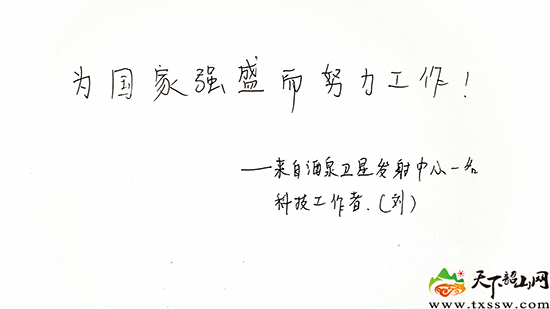 为国家强盛而努力工作！
——来自酒泉卫星发射中心一名
科技工作者.（刘）
天下韶山网
www.txssw.com